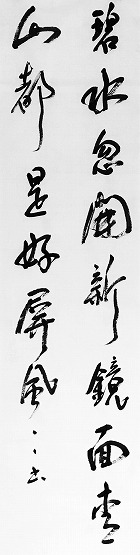 碧水忽開新鏡面青
山都是好屏風